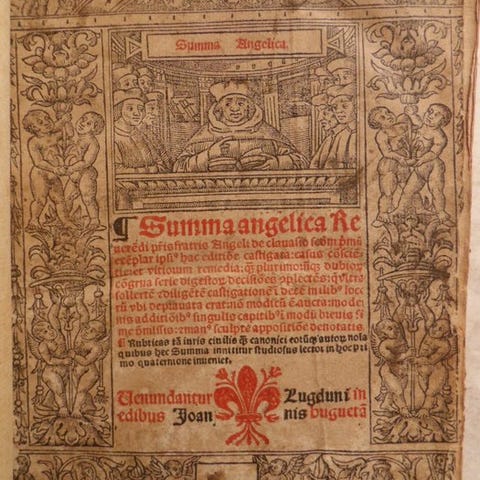 Summa Angelica.
¶ Summa angelica Re
uerēdi pr̄is fratris Angeli de clauasio scōm pͥmū
exēplar ipīꝰ hac editiōe castigata: casus cōsciē
tie et vitiorum remedia: qͣ plurimorūqꝫ dubior
cōgrua serie digestor decisiōes cōplectēs: q̄ vltra
sollertē et diligētē castigationē
modicū ē aucta: moder
nis additiōibꝰ singulis capitibꝰ i modū breuis su
me ōmissis: zmanꝰ sculpte appositiōe denotatis.
¶ Rubricas tā iuris ciuilis qͣꝫ canonici eorūqꝫ autor nosa
quibus hec Summa innititur studiosus lector in hoc pri
mo quaternione inueniet.
Uenundantur Lugduni in
edibus Joan nis huguetā